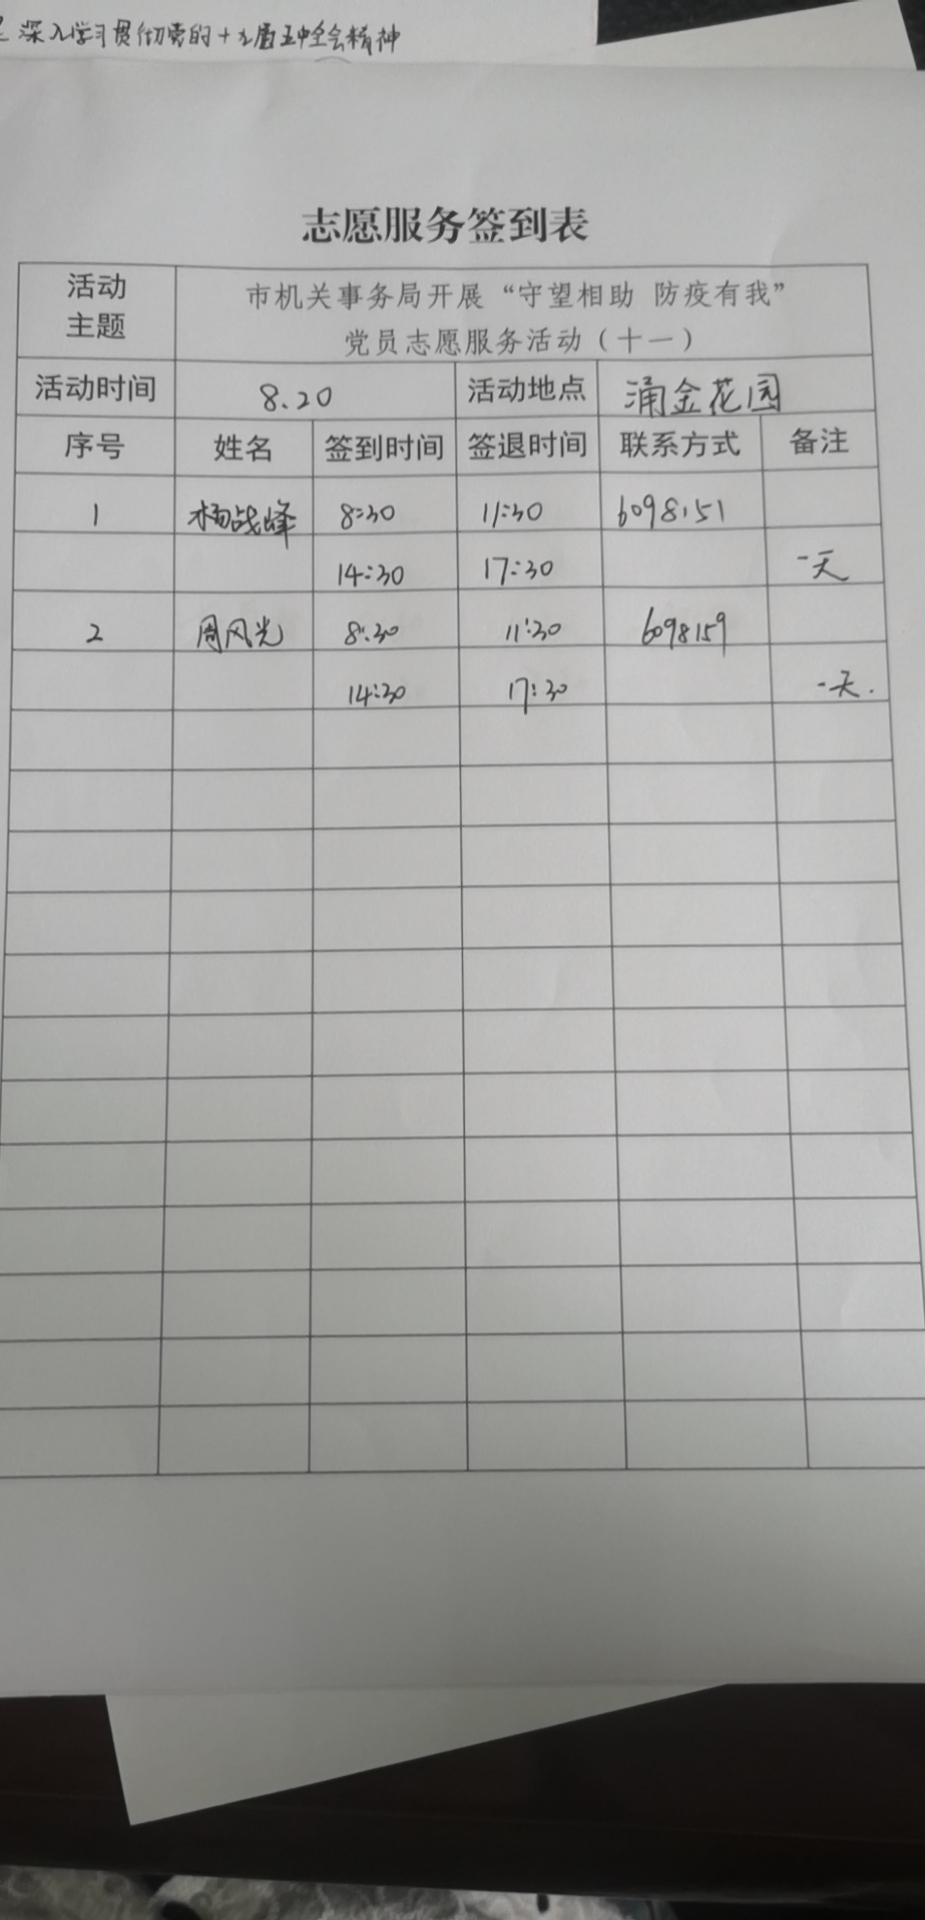 深入学习贯彻党的十九届五中全会精神
志愿服务签到表
活动
主题
市机关事务局开展“守望相助 防疫有我”
党员志愿服务活动（十一）
活动时间 8.20 活动地点 涌金花园
序号 姓名 签到时间 签退时间 联系方式 备注
1 杨战峰 8:30 11:30 6098151
14:30 17:30 一天
2 周风光 8:30 11:30 6098159
14:30 17:30 一天.